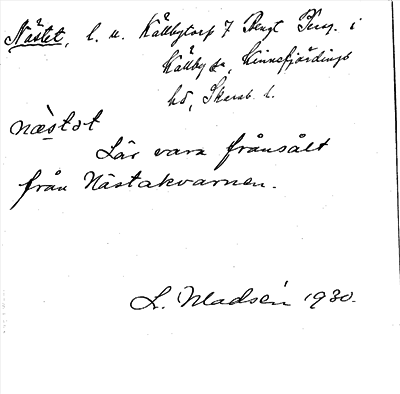 Nästet, l. u. Källbytorp 7 Bengt Pers. i
Källby sn, Kinnefjärdings
hd, Skarab. l.
næstət
Lär vara frånsålt
från Nästakvarnen.
L. Madsén 1930.